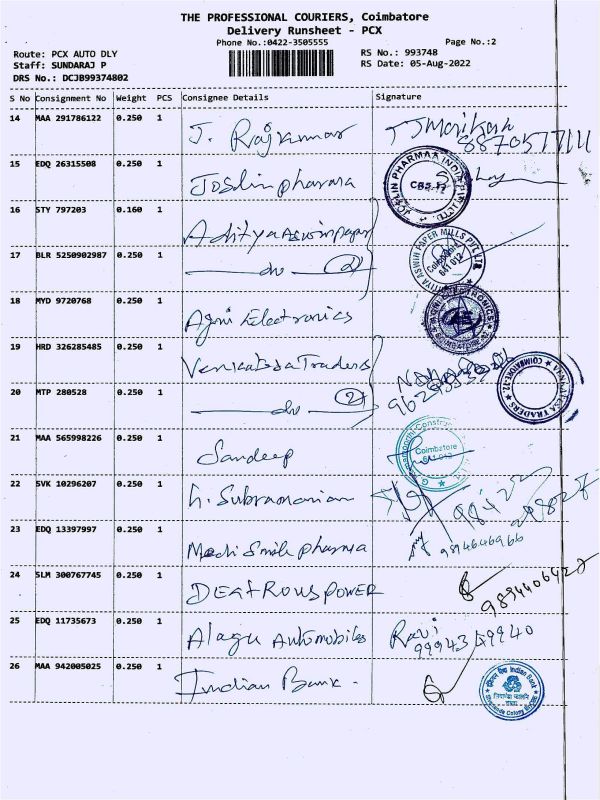 THE PROFESSIONAL COURIERS, Coimbatore
Delivery Runsheet - PCX
Phone No.:0422-3505555 Page No.:2
Route: PCX AUTO DLY RS No.: 993748
Staff: SUNDARAJ P RS Date: 05-Aug-2022
DRS No.: DCJB99374802
S No Consignment No Weight PCS Consignee Details Signature
14 MAA 291786122 0.250 1 J. Rajkumar
15 EDQ 26315508 0.250 1 Joslin pharma
16 STY 797203 0.160 1 Aditya Aswin paper
17 BLR 5250902987 0.250 1 do 2
18 MYD 9720768 0.250 1 Agni Electronics
19 HRD 326285485 0.250 1 Traders
20 MTP 280528 0.250 1 do 2
21 MAA 565998226 0.250 1 Sandeep
Coimbatore
641 012
22 SVK 10296207 0.250 1 Subramanian
23 EDQ 13397997 0.250 1 Medi Smile pharma
9894646966
24 SLM 300767745 0.250 1 POWER
25 EDQ 11735673 0.250 1 Alagu Automobiles Ravi
99943 59940
26 MAA 942005025 0.250 1 Indian Bank -
Indian Bank